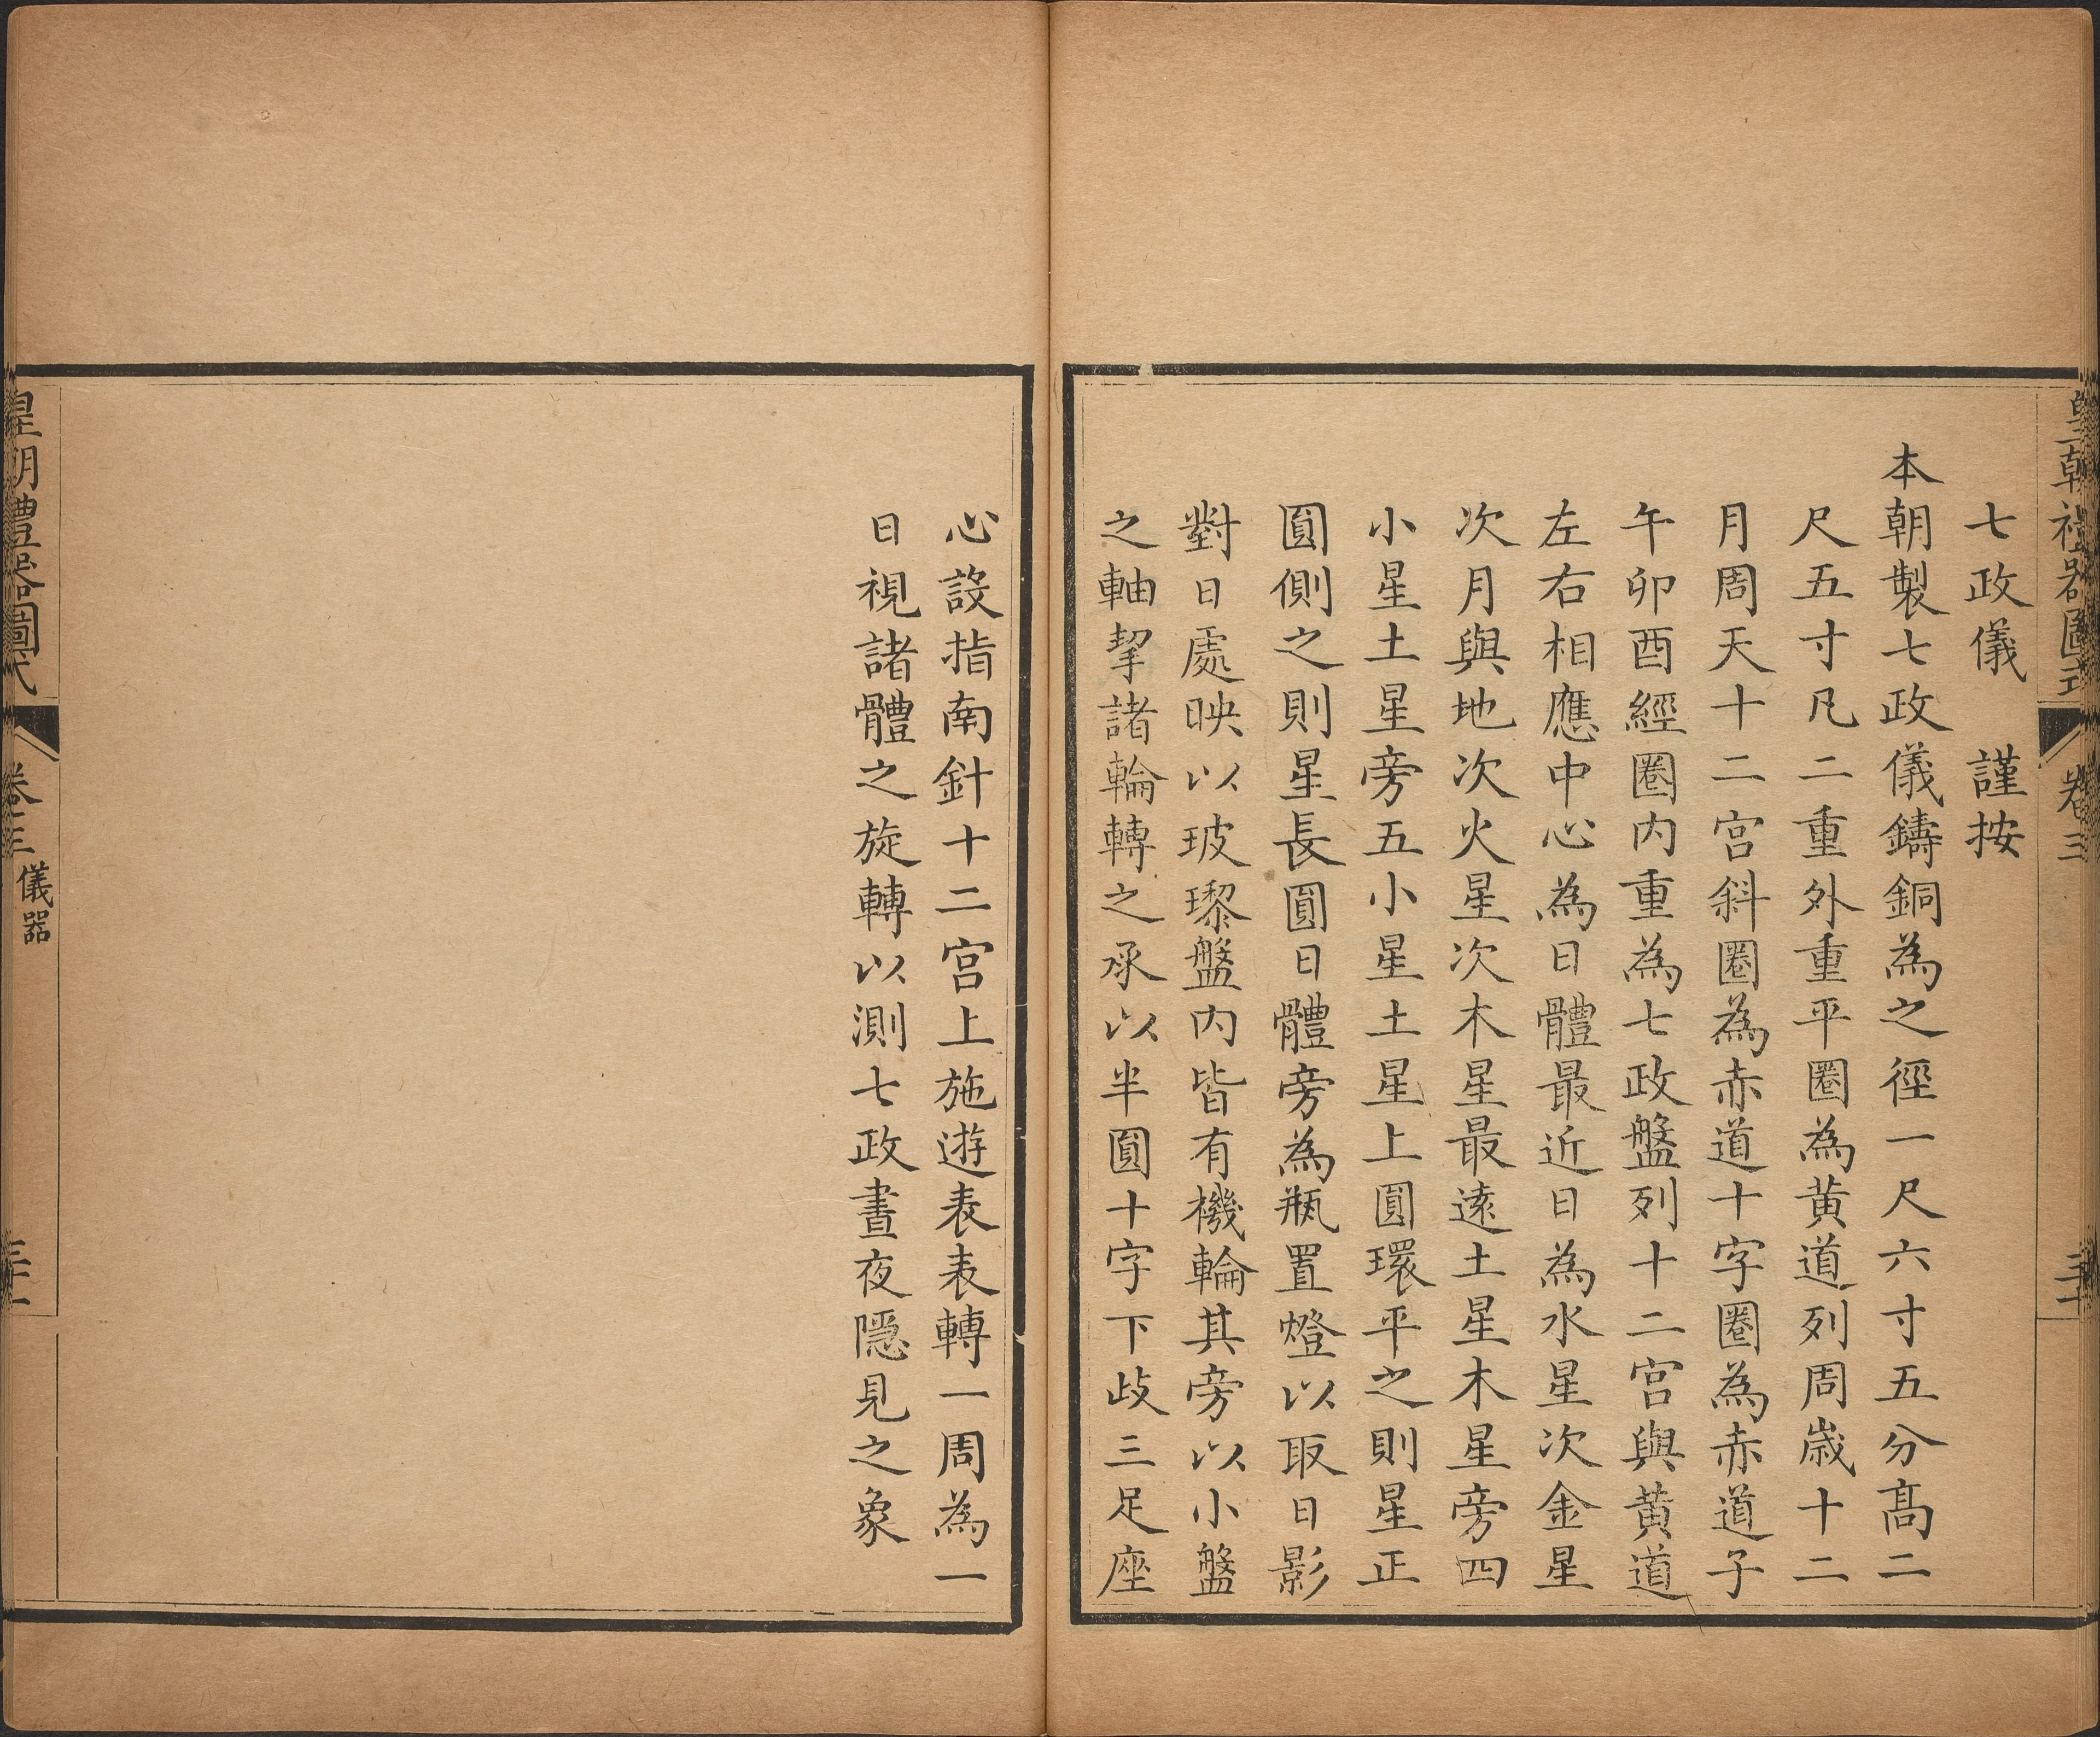 皇朝禮器圖式 卷三
七政儀 謹按
本朝製七政儀鑄銅為之徑一尺六寸五分高二
尺五寸凡二重外重平圈為黃道列周歲十二
月周天十二宮斜圈為赤道十字圈為赤道子
午卯酉經圈内重為七政盤列十二宮與黃道
左右相應中心為日體最近日為水星次金星
次月與地次火星次木星最遠土星木星旁四
小星土星旁五小星土星上圓環平之則星正
圓側之則星長圓日體旁為瓶置燈以取日影
對日處映以玻瓈盤内皆有機輪其旁以小盤
之軸挈諸輪轉之承以半圓十字下歧三足座
心設指南針十二宮上施遊表表轉一周為一
日視諸體之旋轉以測七政晝夜隱見之象
皇朝禮器圖式 卷三 儀器